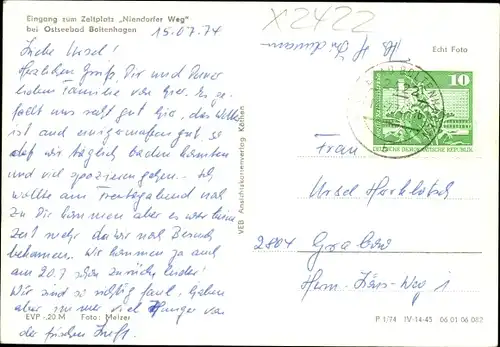 Eingang zum Zeltplatz „Niendorfer Weg"
bei Ostseebad Boltenhagen
15.07.74
X2422
Echt Foto
Liebe Ursel!
Herzlichen Gruß Dir und Deiner
lieben Familie von hier. Es ge-
fällt uns recht gut hier, das Wetter
ist auch einigermaßen gut, so
daß wir täglich baden konnten
und viel spazierengehen. Ich
wollte am Freitagabend noch
zu Dir kommen aber es war keine
Zeit mehr da wir noch Besuch
bekamen. Wir kommen ja auch
am 20.7 schon zurück leider!
Wir sind so richtig faul, haben
aber immer viel Hunger von
der frischen Luft.
10
DEUTSCHE DEMOKRATISCHE REPUBLIK
Frau
Ursel
2804 Grabow
VEB Ansichtskartenverlag Köthen
EVP -.20 M Foto: Melzer
P 1/74 IV-14-45 06 01 06 082